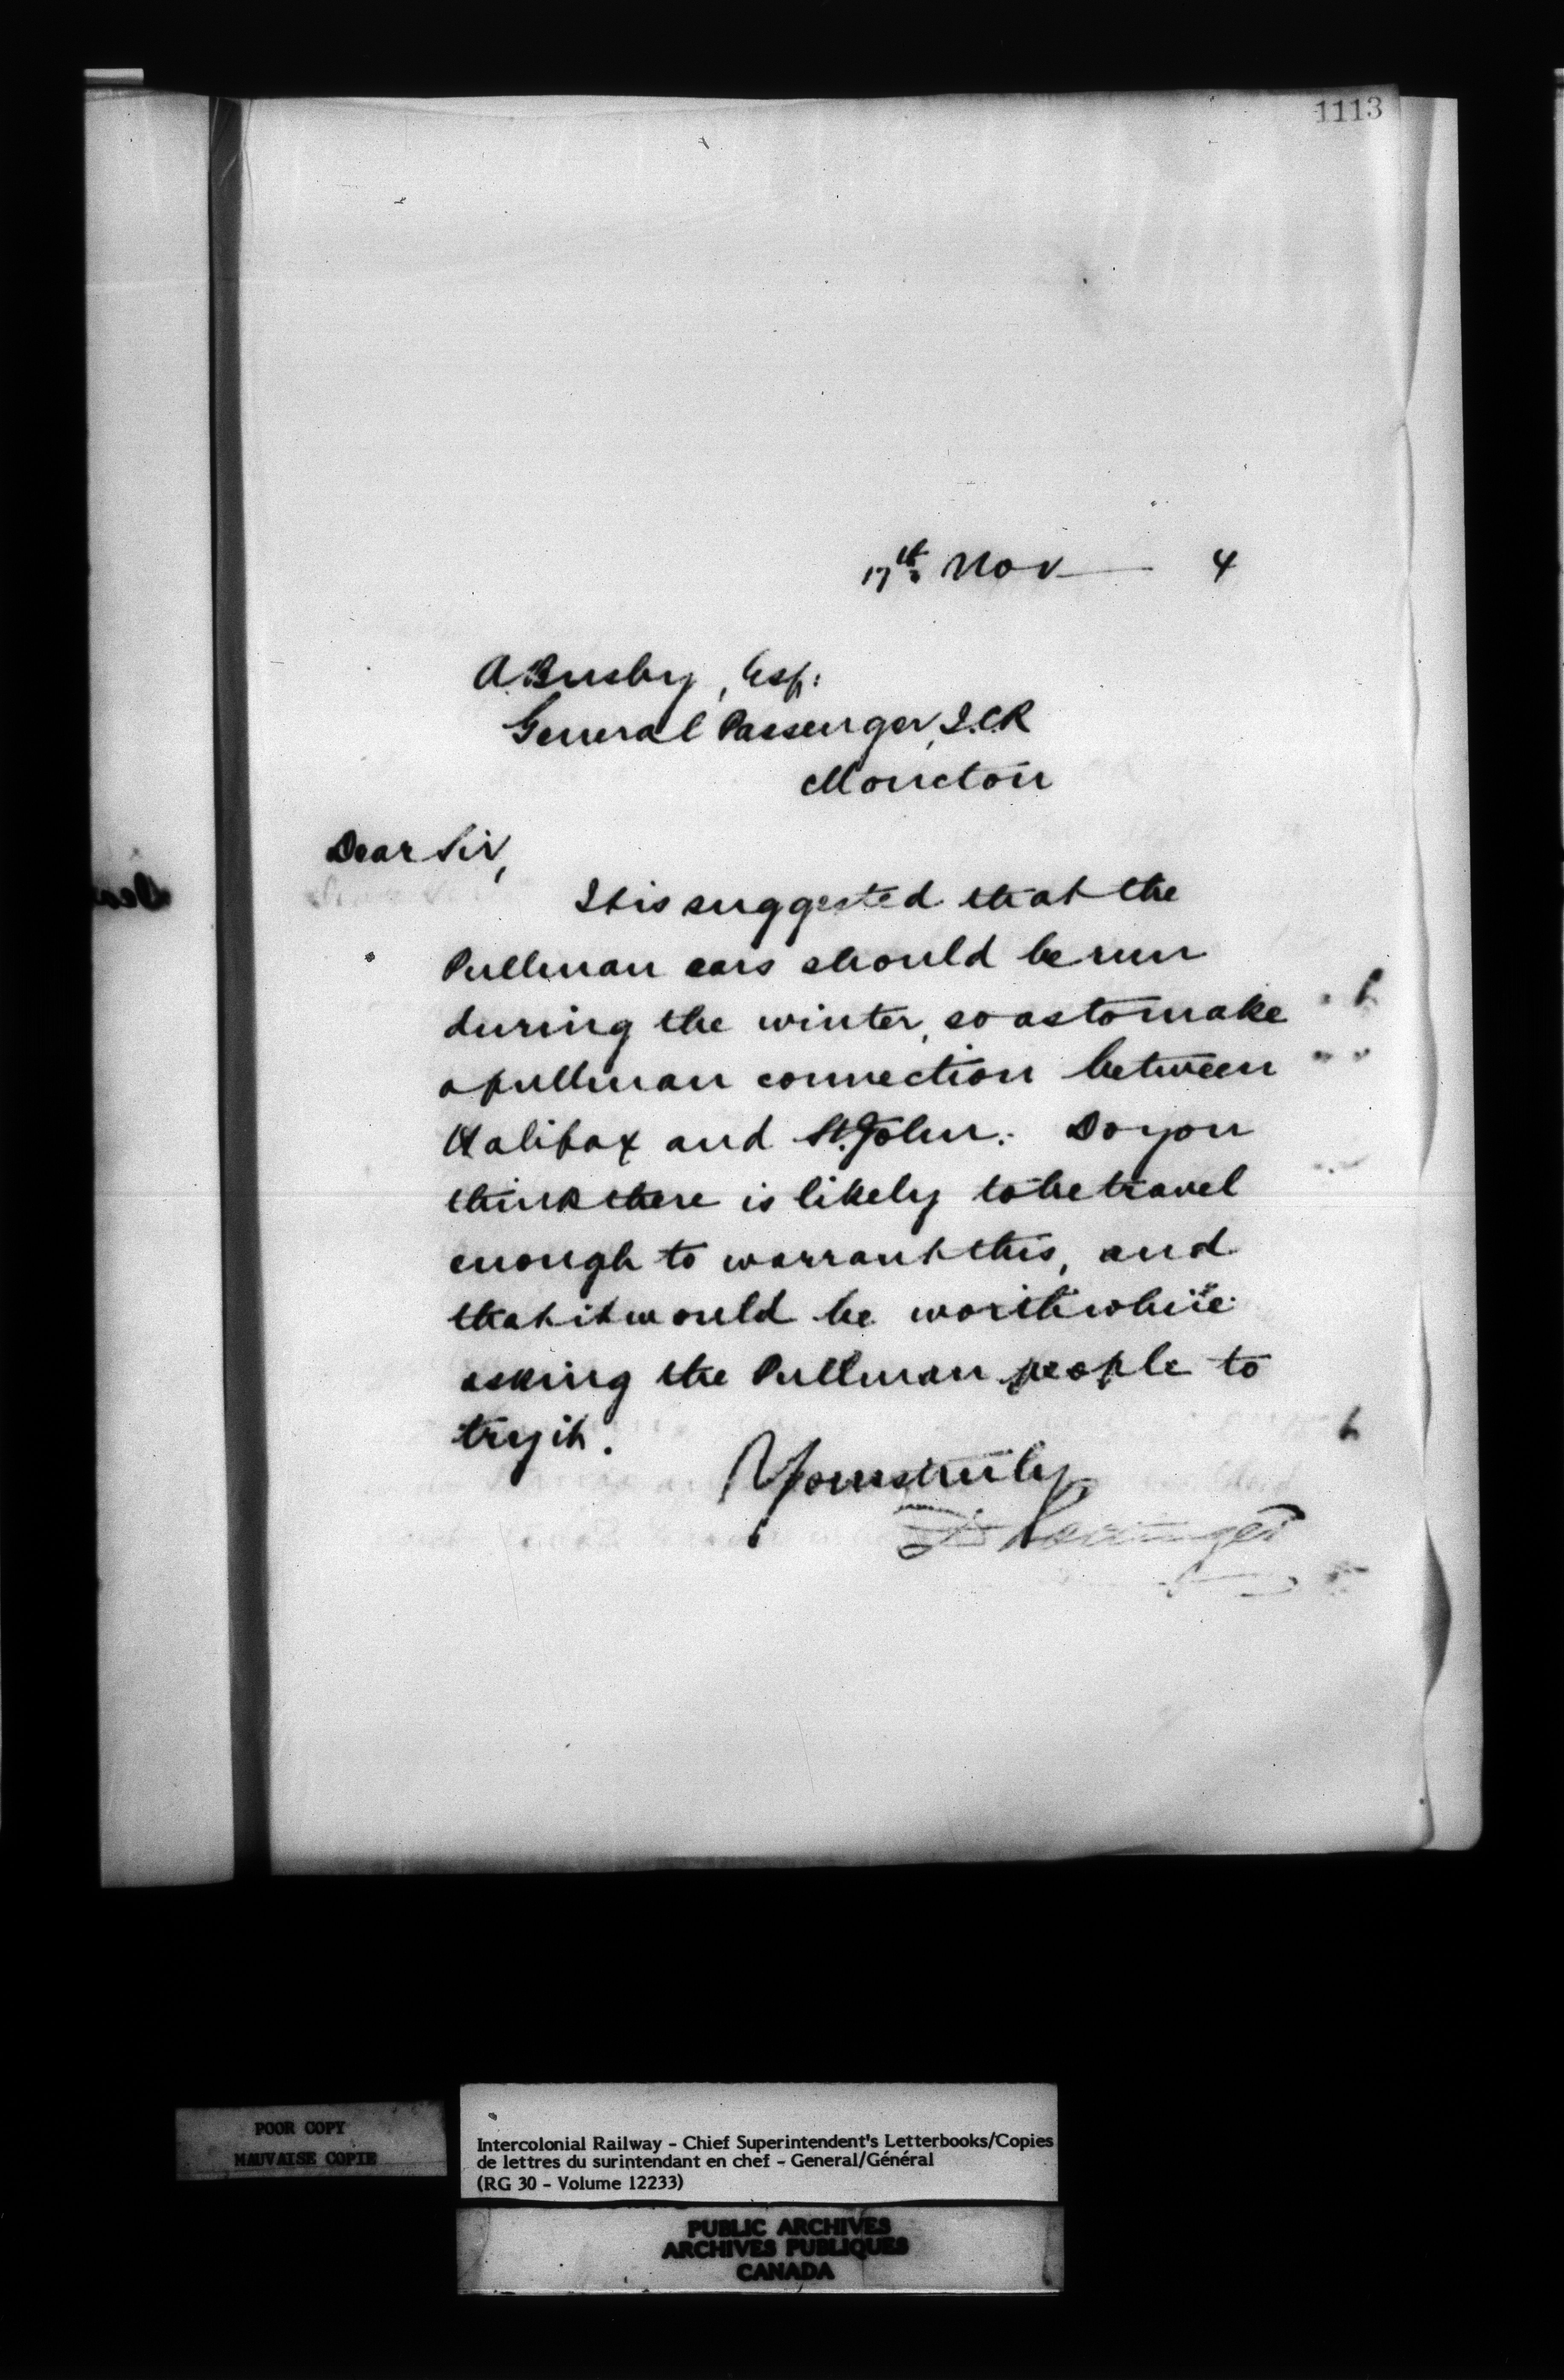 1113
17th Nov 4
A. Busby, Esq:
General Passenger, I.C.R
Moncton
Dear Sir,
It is suggested that the
Pullman cars should be run
during the winter, so as to make
a pullman connection between
Halifax and St. John. Do you
think there is likely to be travel
enough to warrant this, and
that it would be worth while
asking the Pullman people to
try it.
Yours truly,
D Pottinger
POOR COPY
MAUVAISE COPIE
Intercolonial Railway - Chief Superintendent's Letterbooks/Copies
de lettres du surintendant en chef - General/Général
(RG 30 - Volume 12233)
PUBLIC ARCHIVES
ARCHIVES PUBLIQUES
CANADA